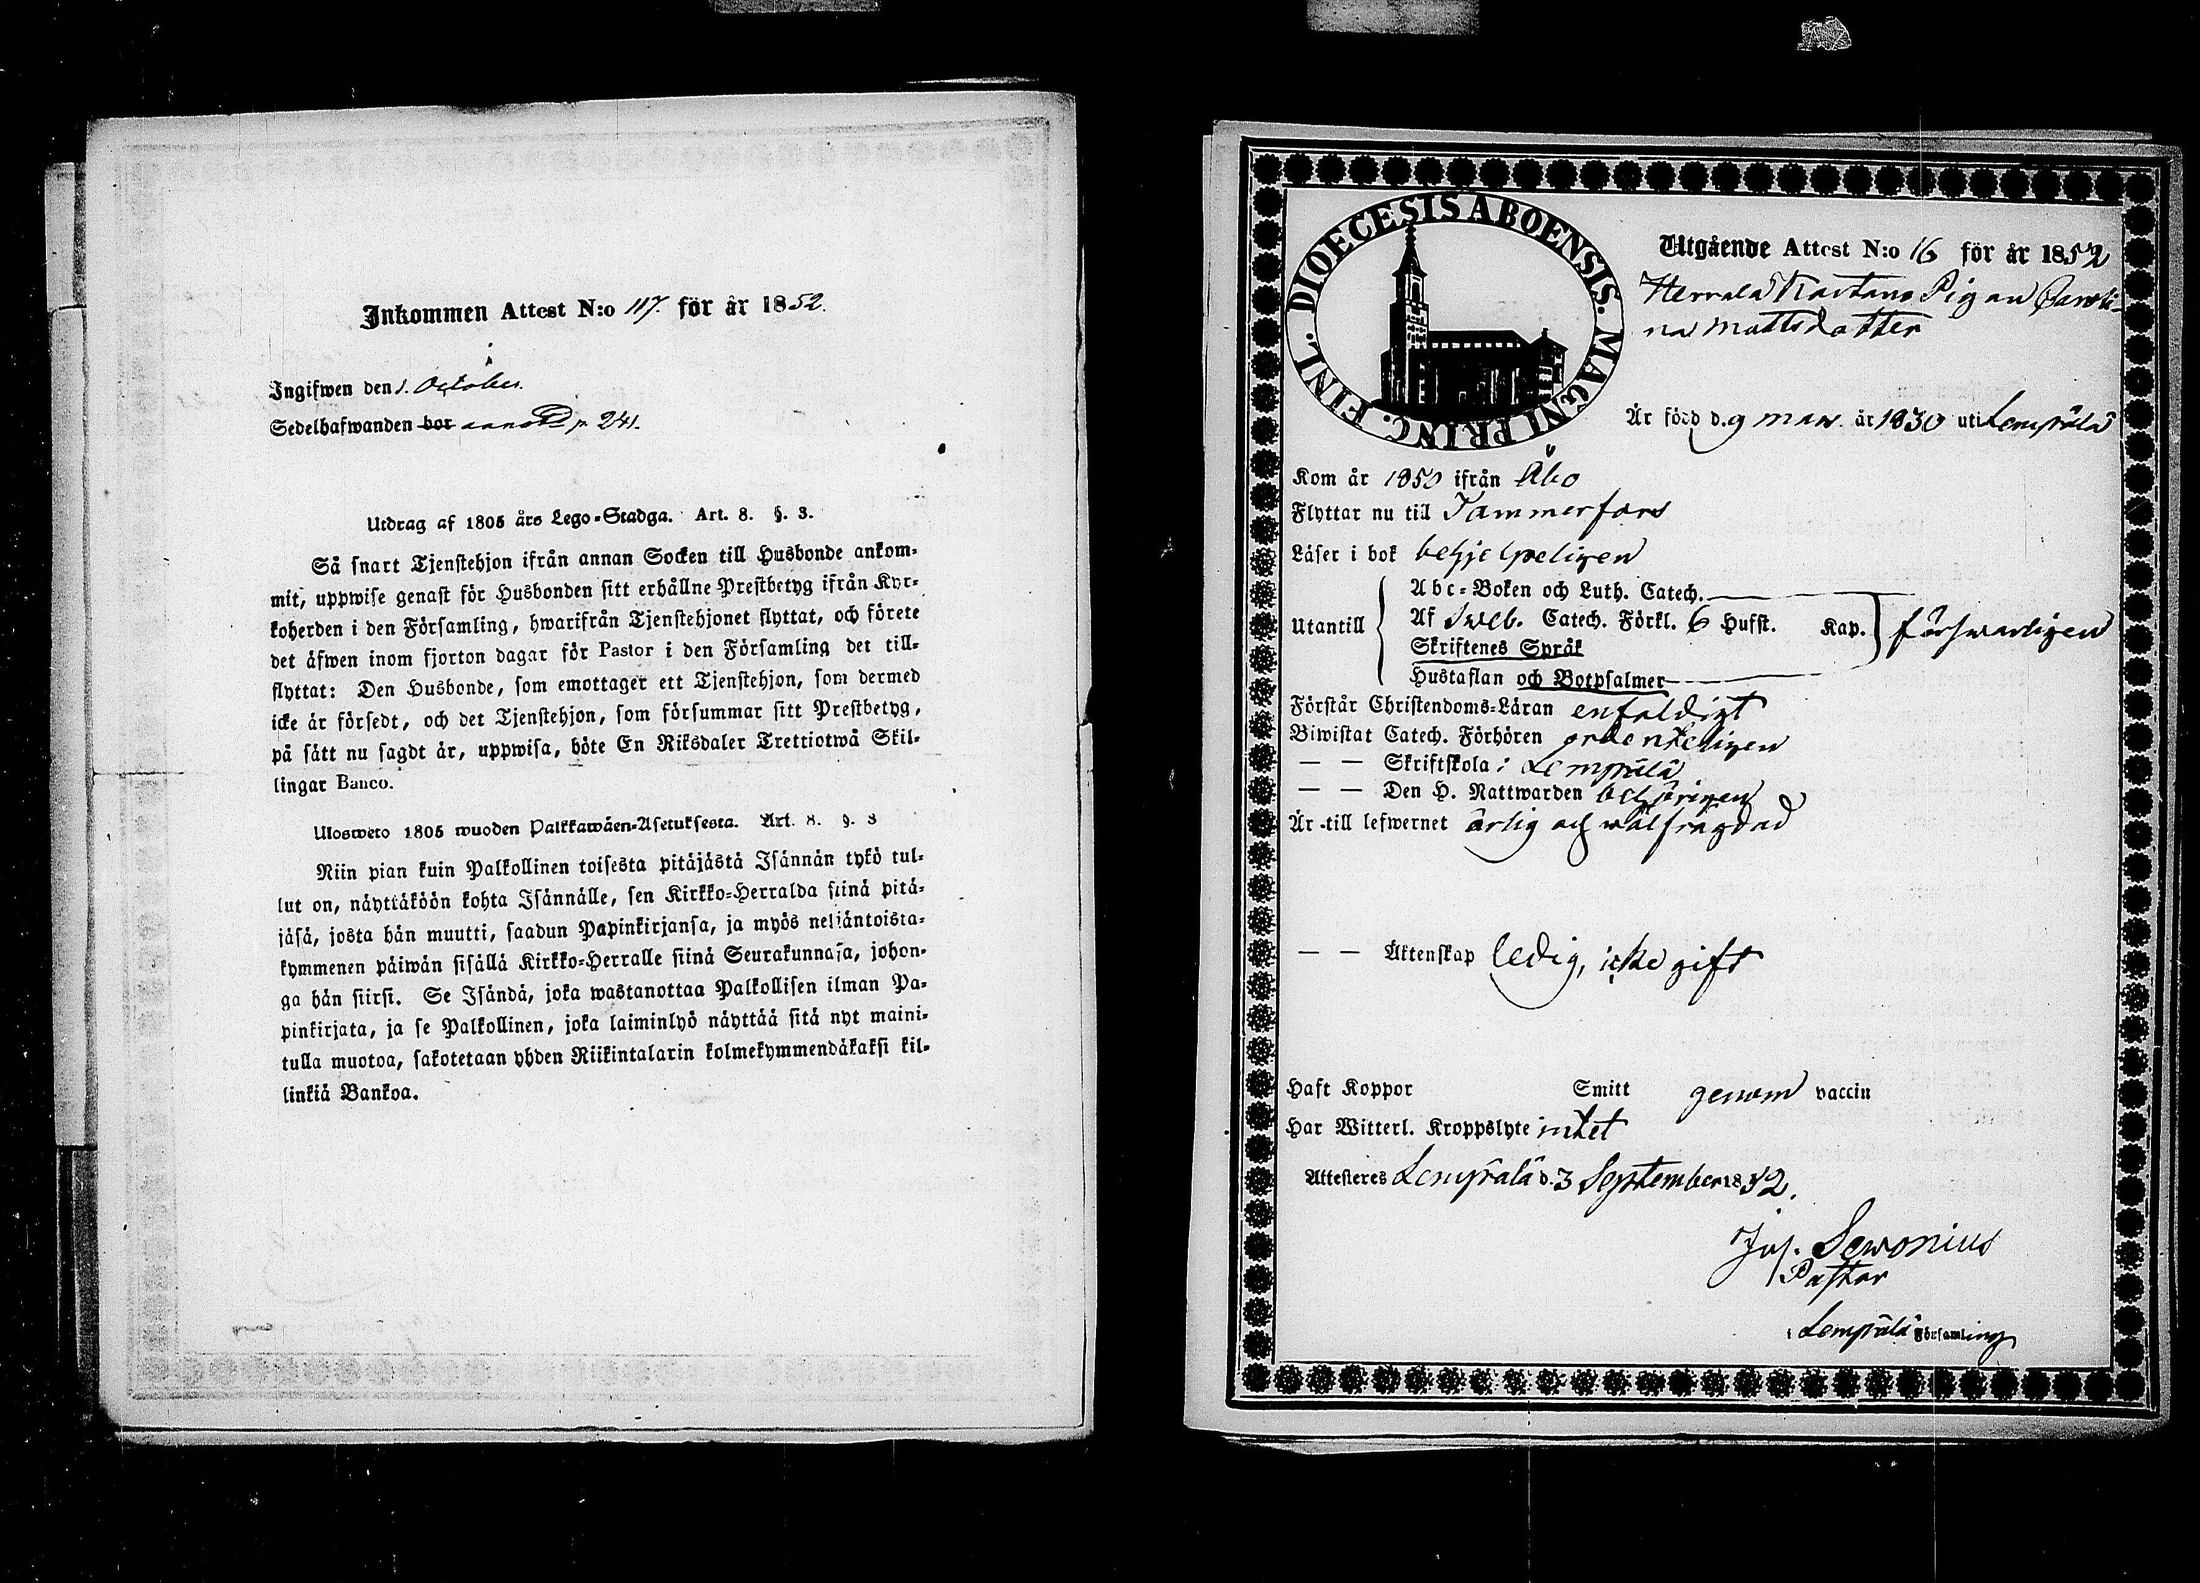 Inkommen Attest N:o 117. för år 1852.
Ingifwen den 1. October.
Sedelhafwanden bor p. 241.
Utdrag af 1805 års Lego-Stadga. Art. 8. §. 3.
Så snart Tjenstehjon ifrån annan Socken till Husbonde ankom-
mit, uppwise genast för Husbonden sitt erhållne Prestbetyg ifrån Kyr-
koherden i den Församling, hwarifrån Tjenstehjonet flyttat, och förete
det äfwen inom fjorton dagar för Pastor i den Församling det till-
flyttat: Den Husbonde, som emottager ett Tjenstehjon, som dermed
icke är försedt, och det Tjenstehjon, som försummar sitt Prestbetyg,
på sätt nu sagdt är, uppwisa, böte En Riksdaler Trettiotwå Skil-
lingar Banco.
Ulosweto 1805 wuoden Palkkawäen-Asetuksesta. Art. 8. §. 3
Niin pian kuin Palkollinen toisesta pitäjästä Isännän tykö tul-
lut on, näyttäköön kohta Isännälle, sen Kirkko-Herralda siinä pitä-
jäsä, josta hän muutti, saadun Papinkirjansa, ja myös neljäntoista-
kymmenen päiwän sisällä Kirkko-Herralle siinä Seurakunnasa, johon-
ga hän siirsi. Se Isändä, joka wastanottaa Palkollisen ilman Pa-
pinkirjata, ja se Palkollinen, joka laiminlyö näyttää sitä nyt maini-
tulla muotoa, sakotetaan yhden Riikintalarin kolmekymmendäkaksi kil-
linkiä Bankoa.
DIOECESIS ABOENSIS. MAGNI PRINC. FINL.
Utgående Attest N:o 16 för år 1852
Herrala Kartano Pigan Caroli-
na Mattsdotter
Är född d. 9 mars. år 1830 uti Lempäla
Kom år 1850 ifrån Åbo
Flyttar nu till Tammerfors
Läser i bok behjelpeligen
Abc-Boken och Luth. Catech.
Utantill Af Sveb. Catech. Förkl. 6 Hufst. Kap. försvarligen
Skriftenes Språk
Hustaflan och Botpsalmer
Förstår Christendoms-Läran enfaldigt
Biwistat Catech. Förhören ordenteligen
— — Skriftskola i Lempälä
— — Den H. Nattwarden behörigen
Är till lefwernet ärlig och wälfrägdad
— — Äktenskap ledig, icke gift
Haft Koppor Smitt genom vaccin
Har Witterl. Kroppslyte intet
Attesteres Lempälä d. 3 September 1852.
Jos. Sewonius
Pastor
i Lempälä Församling